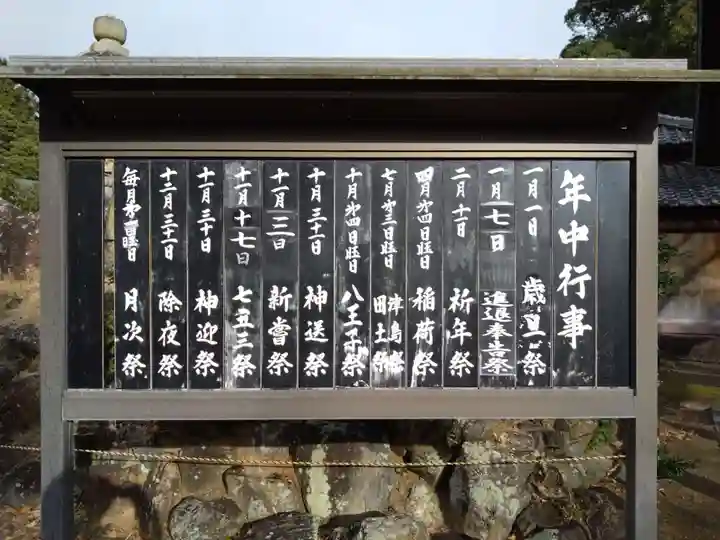 年中行事
一月一日 歳旦祭
一月十七日 進退奉告祭
二月十一日 祈年祭
四月第四日曜日 稲荷祭
七月第三日曜日 津島祭
田土祭
十月第四日曜日 八王子祭
十月三十一日 神送祭
十一月二三日 新嘗祭
十一月十七日 七五三祭
十一月三十日 神迎祭
十二月三十一日 除夜祭
毎月第一日曜日 月次祭